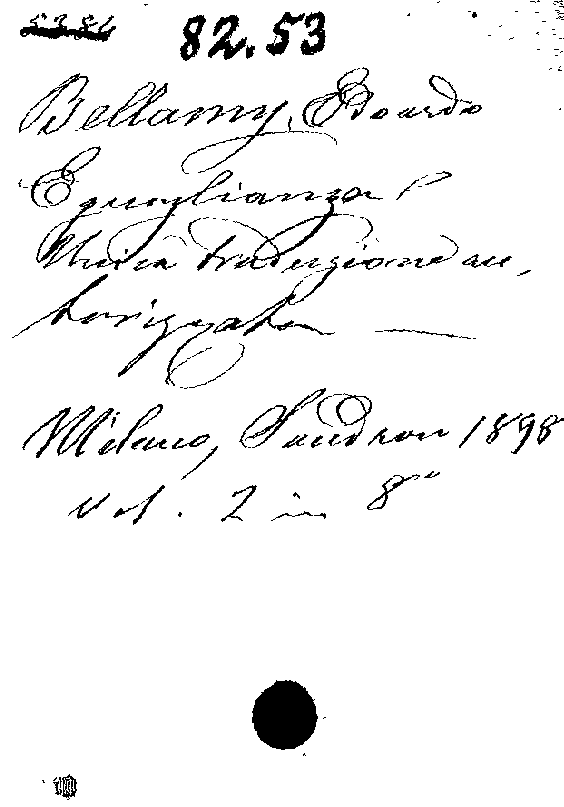 82.53
Bellamy, Edoardo
Eguaglianza!
Unica traduzione au,
torizzata —
Milano, Sandron 1898
Vol. 2 in 8°